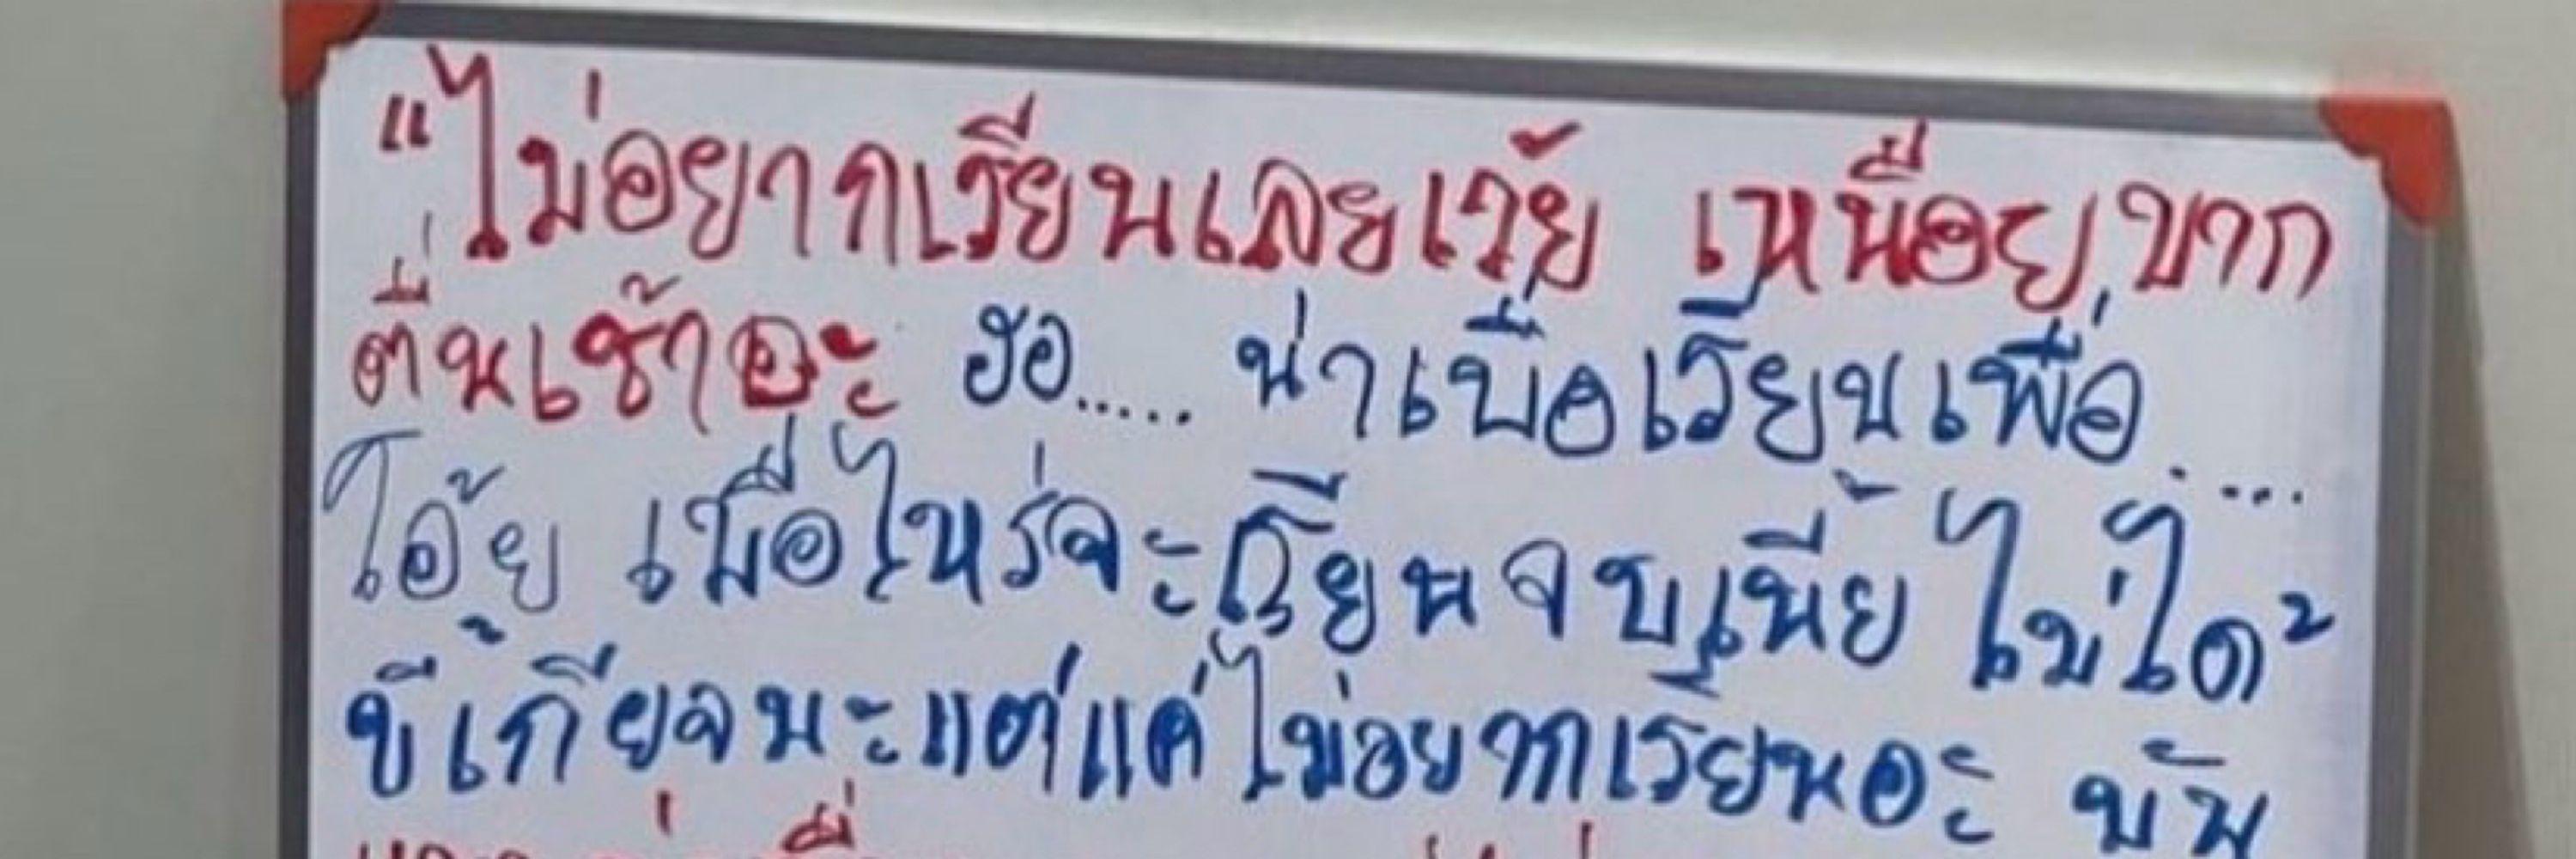 "ไม่อยากเรียนเลยเว้ย เหนื่อยมาก
ตื่นเช้าอะ ฮือ..... น่าเบื่อเรียนเพื่อ....
โอ้ย เมื่อไหร่จะเรียนจบเนี้ย ไม่ได้
ขี้เกียจนะแต่แค่ไม่อยากเรียนอะ มัน